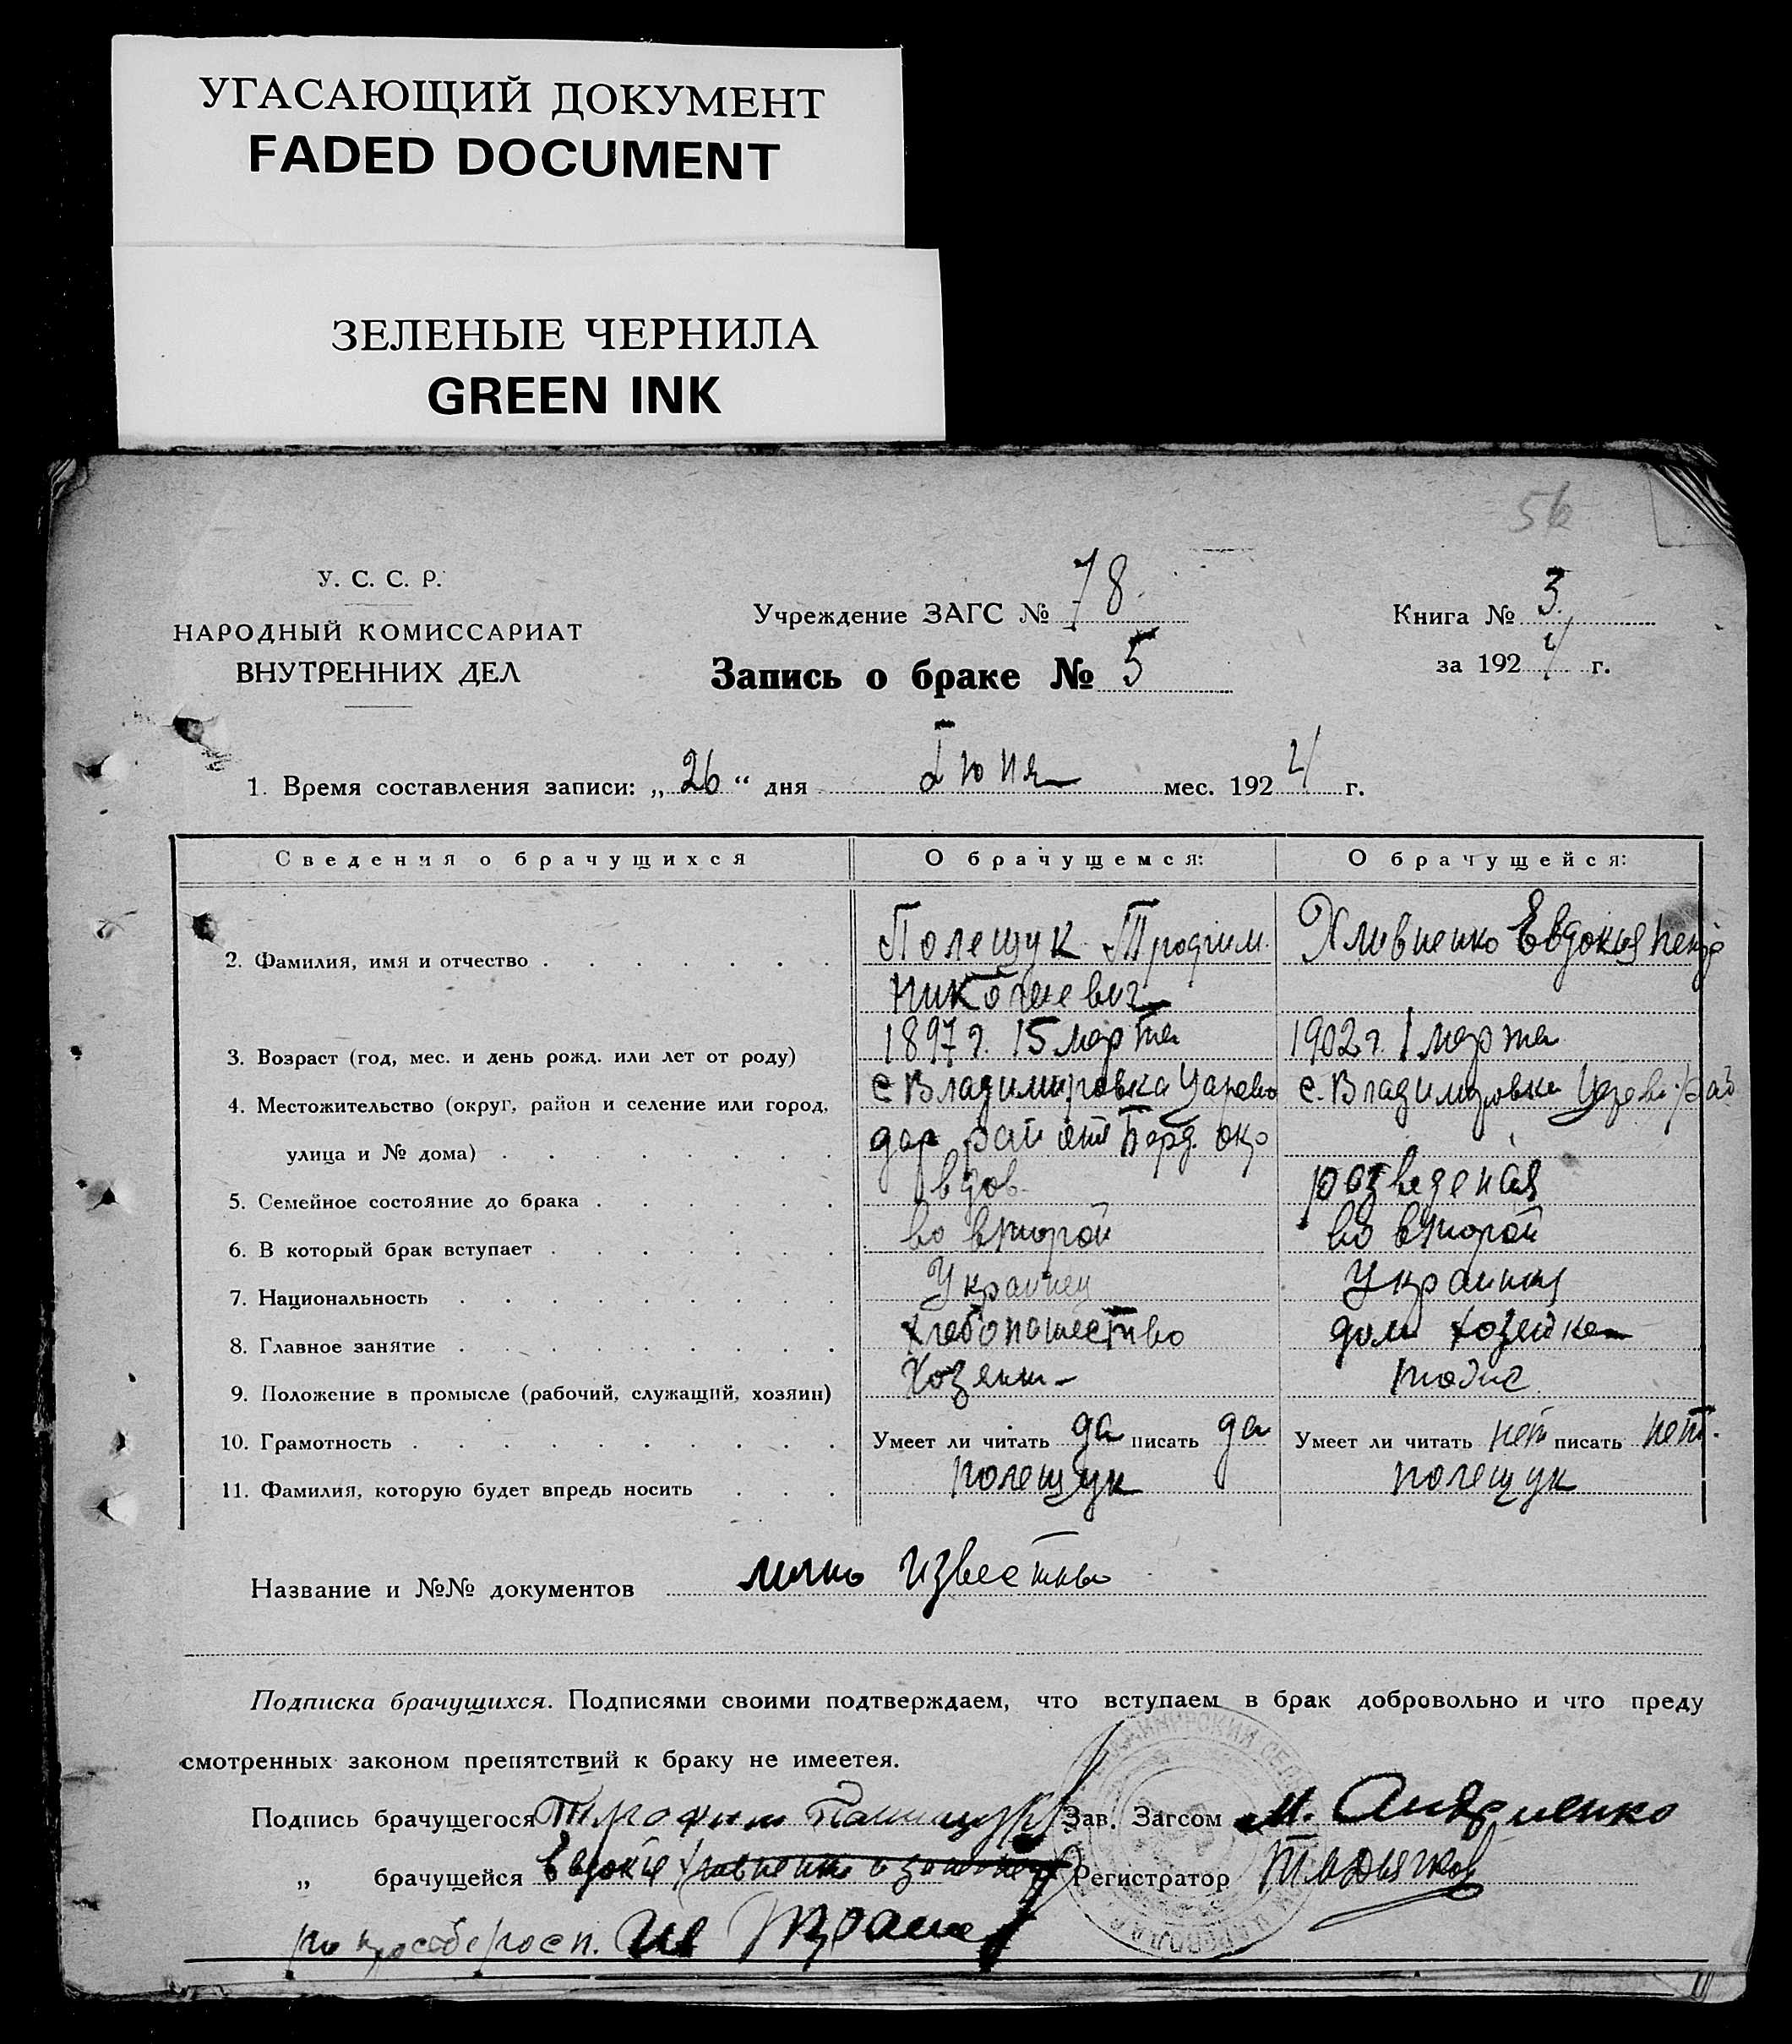 УГАСАЮЩИЙ ДОКУМЕНТ
FADED DOCUMENT
ЗЕЛЕНЫЕ ЧЕРНИЛА
GREEN INK
56
У. С. С. Р.
НАРОДНЫЙ КОМИССАРИАТ
ВНУТРЕННИХ ДЕЛ
Учреждение ЗАГС № 78.
Запись о браке № 5
Книга № 3.
за 1924 г.
1. Время составления записи: „26“ дня Іюня мес. 1924 г.
Сведения о брачущихся О брачущемся: О брачущейся:
2. Фамилия, имя и отчество Полещук Трофим. Хливненко Евдокия
Николаевич
3. Возраст (год, мес. и день рожд. или лет от роду) 1897 г. 15 марта 1902 г. 1 марта
4. Местожительство (округ, район и селение или город, с. Владимировка Царево с. Владимировка Царево
улица и № дома) дар Берд. окр
5. Семейное состояние до брака вдов. розведеная
6. В который брак вступает во второй во второй
7. Национальность Украинец Украинка
8. Главное занятие хлебопашество дом хозейка
9. Положение в промысле (рабочий, служащий, хозяин) Хозяин тоже
10. Грамотность Умеет ли читать да писать да Умеет ли читать нет писать нет.
11. Фамилия, которую будет впредь носить полещук полещук
Название и №№ документов лично известны
Подписка брачущихся. Подписями своими подтверждаем, что вступаем в брак добровольно и что преду
смотренных законом препятствий к браку не имеетея.
Подпись брачущегося Трофим Зав. Загсом М. Андриенко
„ брачущейся Евдокіе Хливненко Регистратор
по просьбе росп. Ив